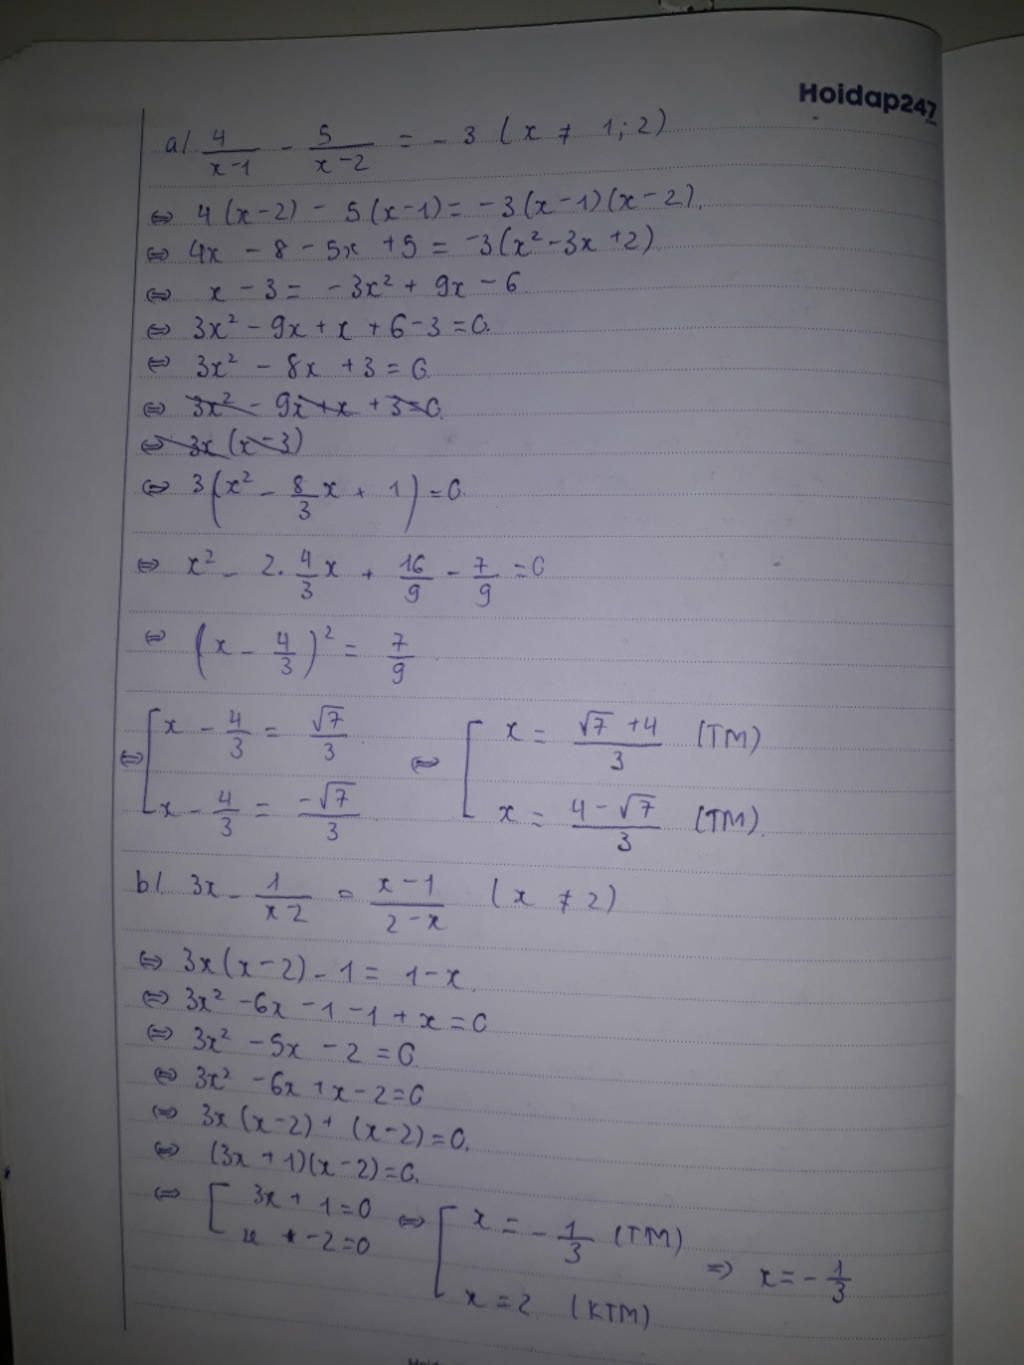 Hoidap247
a/ 4/(x-1) - 5/(x-2) = -3 (x ≠ 1; 2)
⇔ 4(x-2) - 5(x-1) = -3(x-1)(x-2).
⇔ 4x - 8 - 5x + 5 = -3(x² - 3x + 2)
⇔ x - 3 = -3x² + 9x - 6
⇔ 3x² - 9x + x + 6 - 3 = 0.
⇔ 3x² - 8x + 3 = 0
⇔ 3x² - 9x + x + 3 = 0.
⇔ 3x(x-3)
⇔ 3(x² - 8/3 x + 1) = 0.
⇔ x² - 2. 4/3 x + 16/9 - 7/9 = 0
⇔ (x - 4/3)² = 7/9
⇔ [ x - 4/3 = √7/3 ⇔ [ x = (√7 + 4)/3 (TM)
x - 4/3 = -√7/3 x = (4 - √7)/3 (TM).
b/. 3x - 1/(x-2) = (x-1)/(2-x) (x ≠ 2)
⇔ 3x(x-2) - 1 = 1 - x.
⇔ 3x² - 6x - 1 - 1 + x = 0
⇔ 3x² - 5x - 2 = 0
⇔ 3x² - 6x + x - 2 = 0
⇔ 3x(x-2) + (x-2) = 0.
⇔ (3x + 1)(x-2) = 0.
⇔ [ 3x + 1 = 0 ⇔ [ x = -1/3 (TM)
x - 2 = 0 x = 2 (KTM) ⇒ x = -1/3